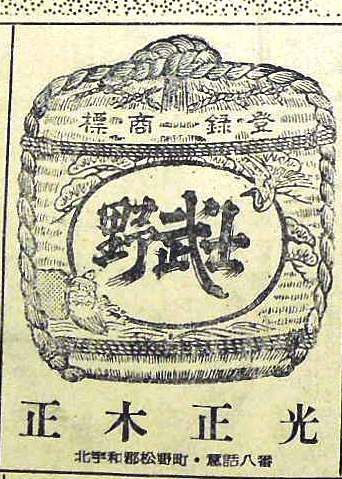 登録商標
野武士
正木正光
北宇和郡松野町・電話八番